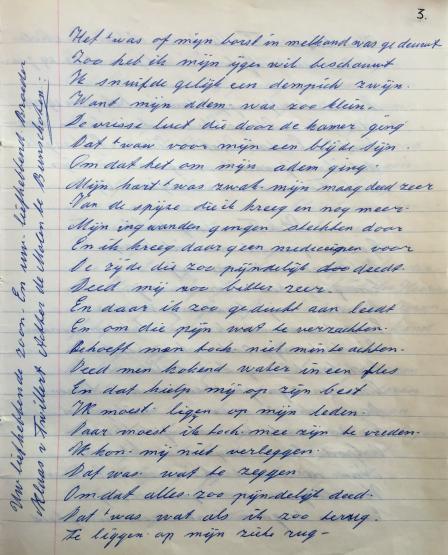 3.
Het 't was of mijn borst in melkand was gedeukt
Zoo heb ik mijn eigen wil beschouwt
Ik snuifde gelijk een dempich zwijn.
Want mijn adem was zoo klein.
De vrisse luct die door de kamer ging
Dat 't waw voor mijn een blijde sijn.
Om dat het om mijn adem ging.
Mijn hart 't was zwak mijn maag deed zeer
Van de spijze die ik kreeg en nog meer.
Mijn ingwanden gingen slechten door
En ik kreeg daar geen medecijnen voor
De zijde die zoo pijndelijk deedt.
Deed mij zoo bitter zeer.
En daar ik zoo geducht aan leedt
En om die pijn wat te verzachten.
Behoeft men toch niet min te achten.
Deed men kokend water in een fles
En dat hielp mij op zijn best
Ik moest ligen op mijn leden.
Daar moest ik toch mee zijn te vreden.
Ik kon mij niet verleggen.
Dat was wat te zeggen
Omdat alles zoo pijndelijk deed.
Dat 't was wat als ik zoo terug.
te liggen op mijn zieke rug-
Uw liefhebbende zoon. En uw liefhebbend Broeder
Klaas v Trillert achter de Molen te Benschchen: